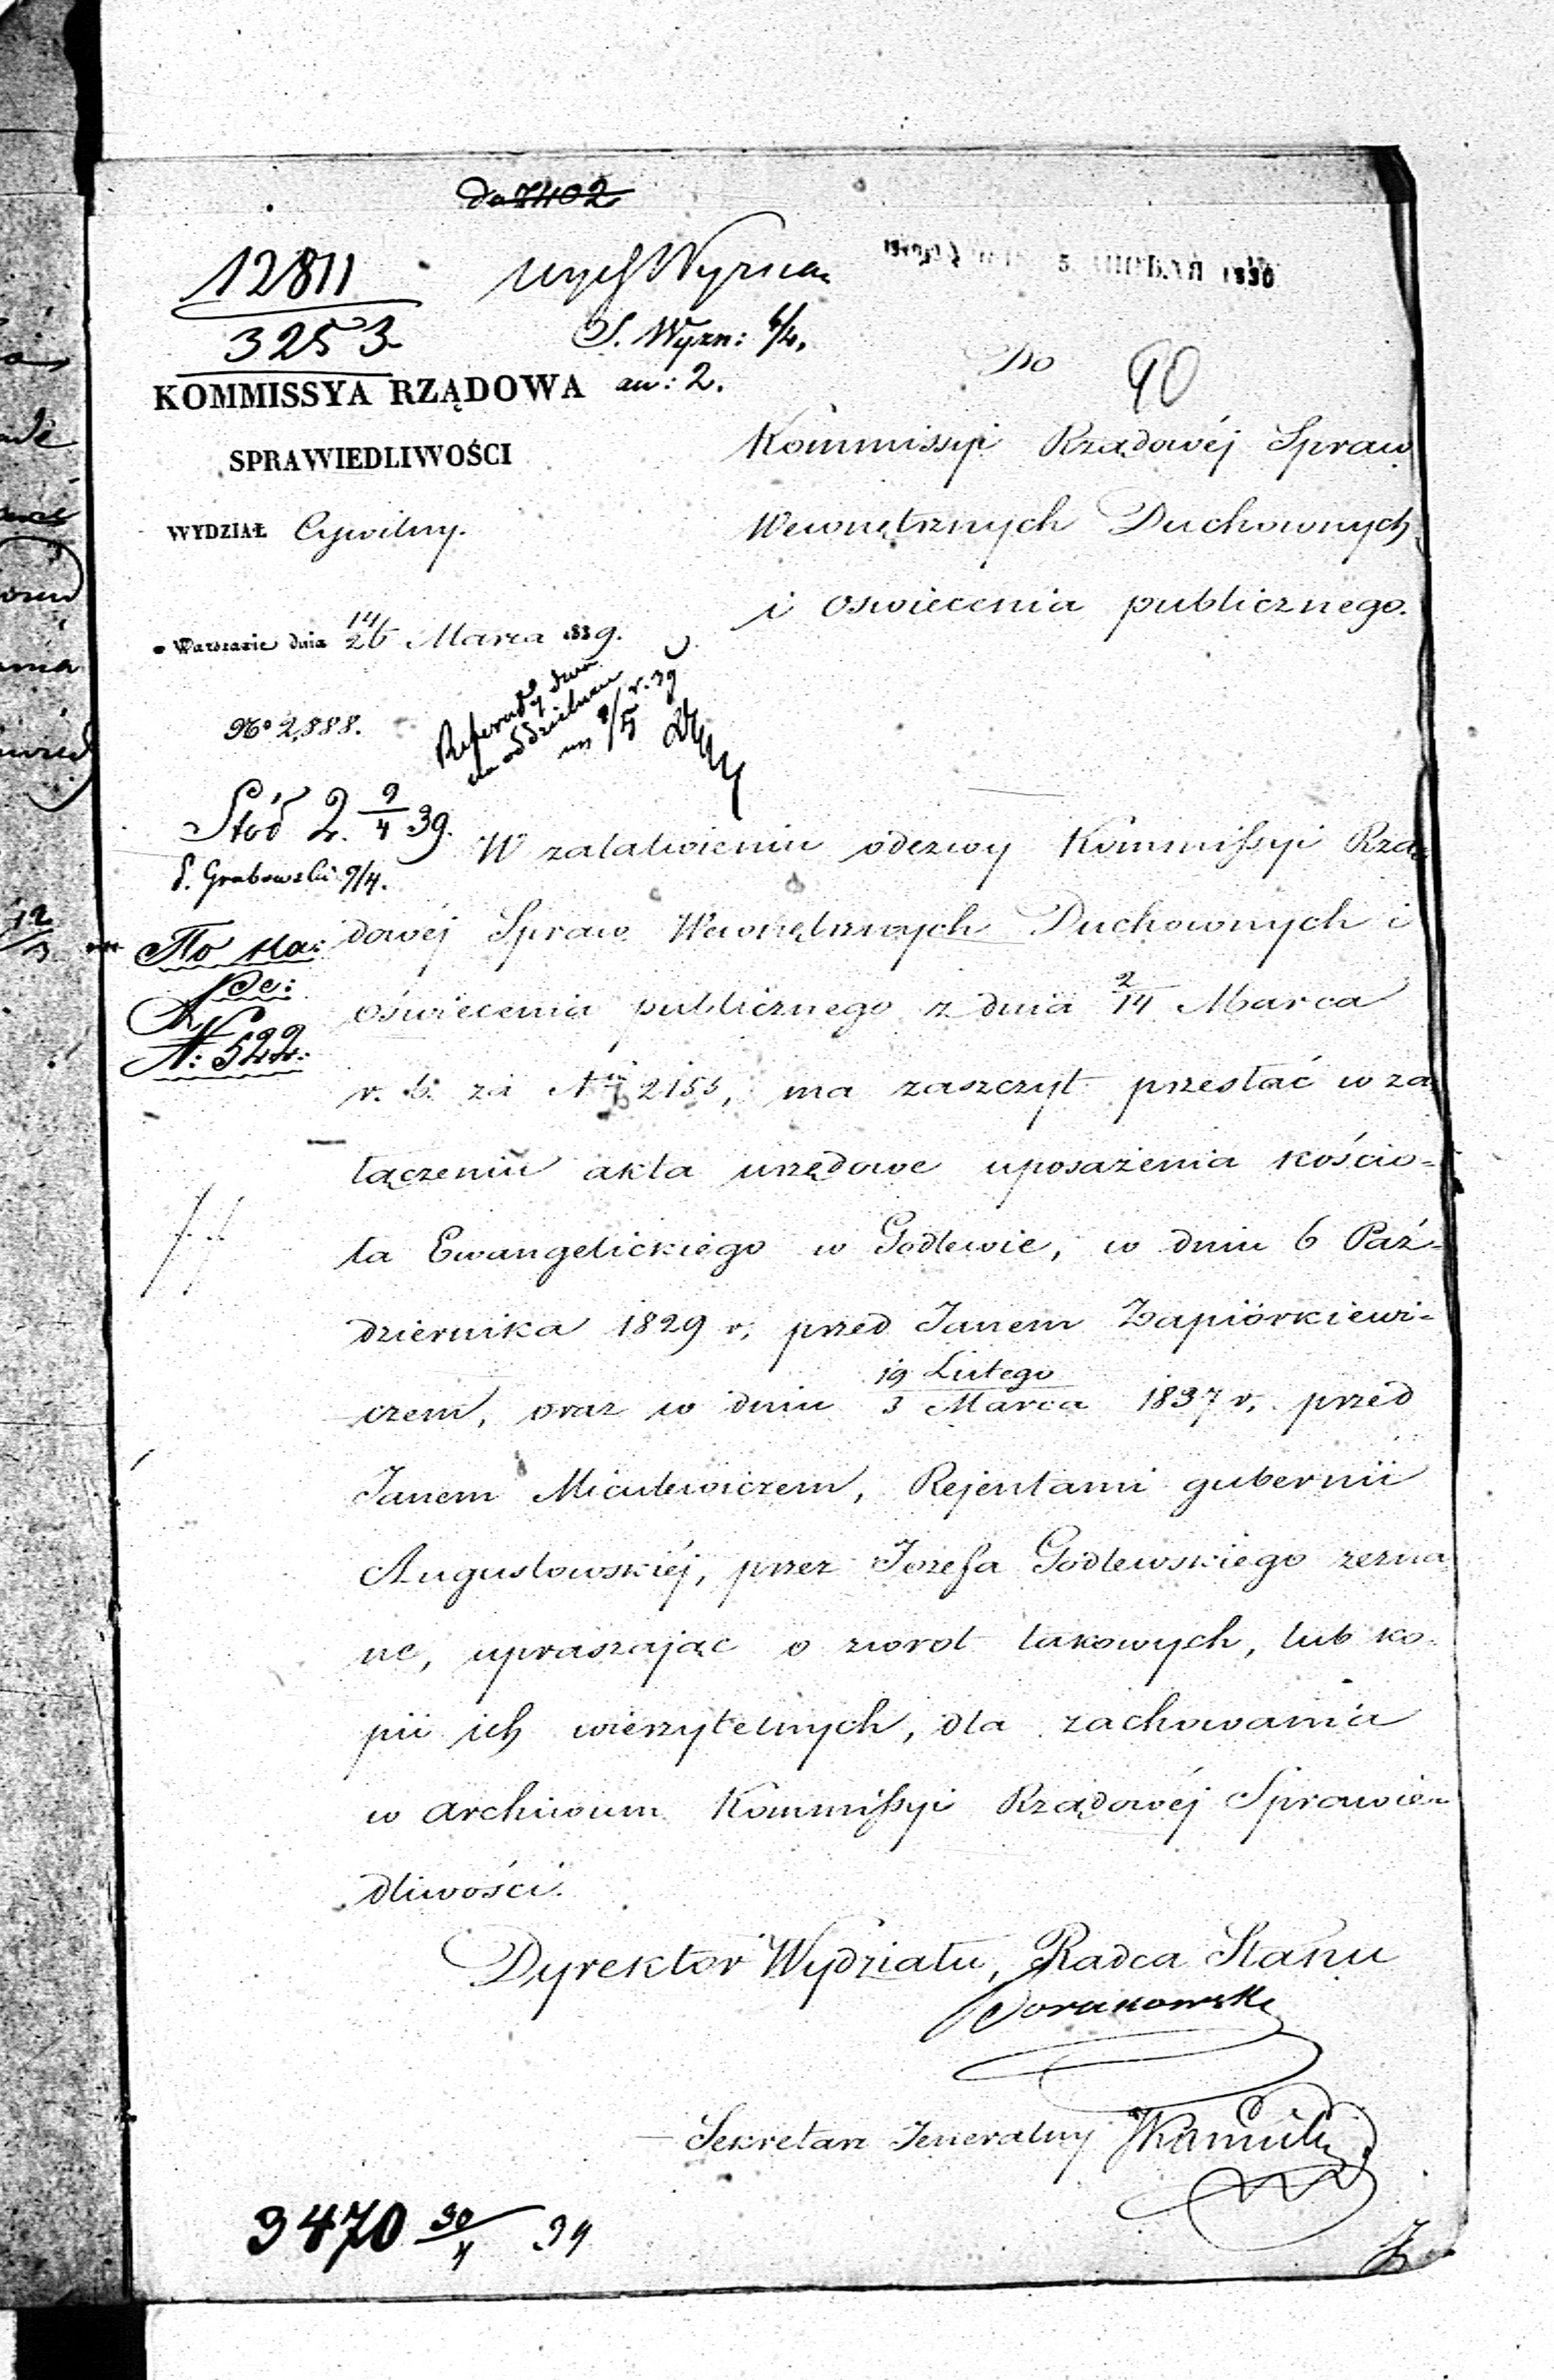 do 7402
12811
3253
Wyzna
S. Wyzn: 6/4,
an: 2.
KOMMISSYA RZĄDOWA
SPRAWIEDLIWOŚCI
WYDZIAŁ Cywilny.
w Warszawie dnia 14/26 Marca 1839.
No 2,888.
Do
90
Kommissyi Rządowéj Spraw
Wewnętrznych Duchownych
i oswiecenia publicznego.
Referaty dwa
na oddzielnem
8/5 r. 39
Stód 2. 9/4 39.
S. Grabowski 9/4.
N: 522.
W załatwieniu odezwy Kommissyi Rzą
dowéj Spraw Wewnętrznych Duchownych i
oświecenia publicznego z dnia 2/14 Marca
r. b. za Nrm 2155, ma zaszczyt przesłać w za
łączeniu akta urzędowe uposażenia kościo=
ła Ewangelickiego w Godlewie, w dniu 6 Paź=
dziernika 1829 r, przed Janem Zapiórkiewi=
czem, oraz w dniu 19 Lutego/3 Marca 1837 r, przed
Janem Miculewiczem, Rejentami gubernii
Augustowskiéj, przez Jozefa Godlewskiego zezna
ne, upraszając o zwrot takowych, lub ko=
pii ich wierzytelnych, dla zachowania
w archiwum Kommissyi Rządowéj Sprawie=
dliwości.
Dyrektor Wydziału, Radca Stanu
Sekretarz Jeneralny
3470 30/4 39